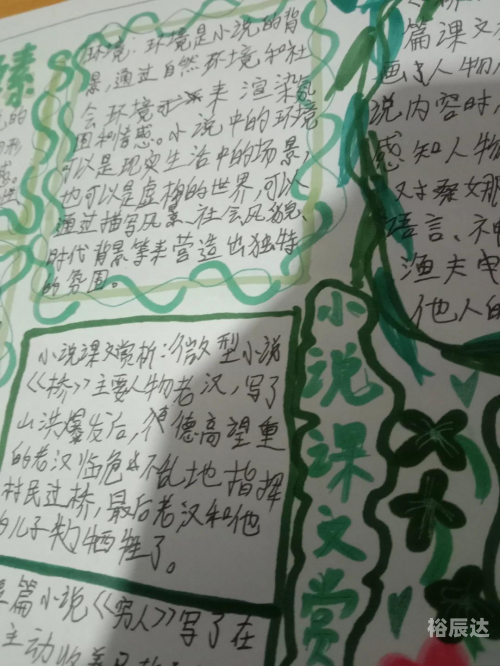 素
的
形
感。
环境：环境是小说的背
景，通过自然环境和社
会环境来渲染氛
围和情感。小说中的环境
可以是现实生活中的场景，
也可以是虚构的世界，可以
通过描写风景、社会风貌、
时代背景等来营造出独特
的氛围。
篇课文
画了人物
说内容时
感知人物
对桑娜
语言、神
渔夫
他人的
小说课文赏析：微型小说
《桥》主要人物老汉，写了
山洪爆发后，德高望重
的老汉临危不乱地指挥
村民过桥，最后老汉和他
的儿子都牺牲了。
小说课文赏
篇小说《穷人》写了在
主动收养
裕辰达